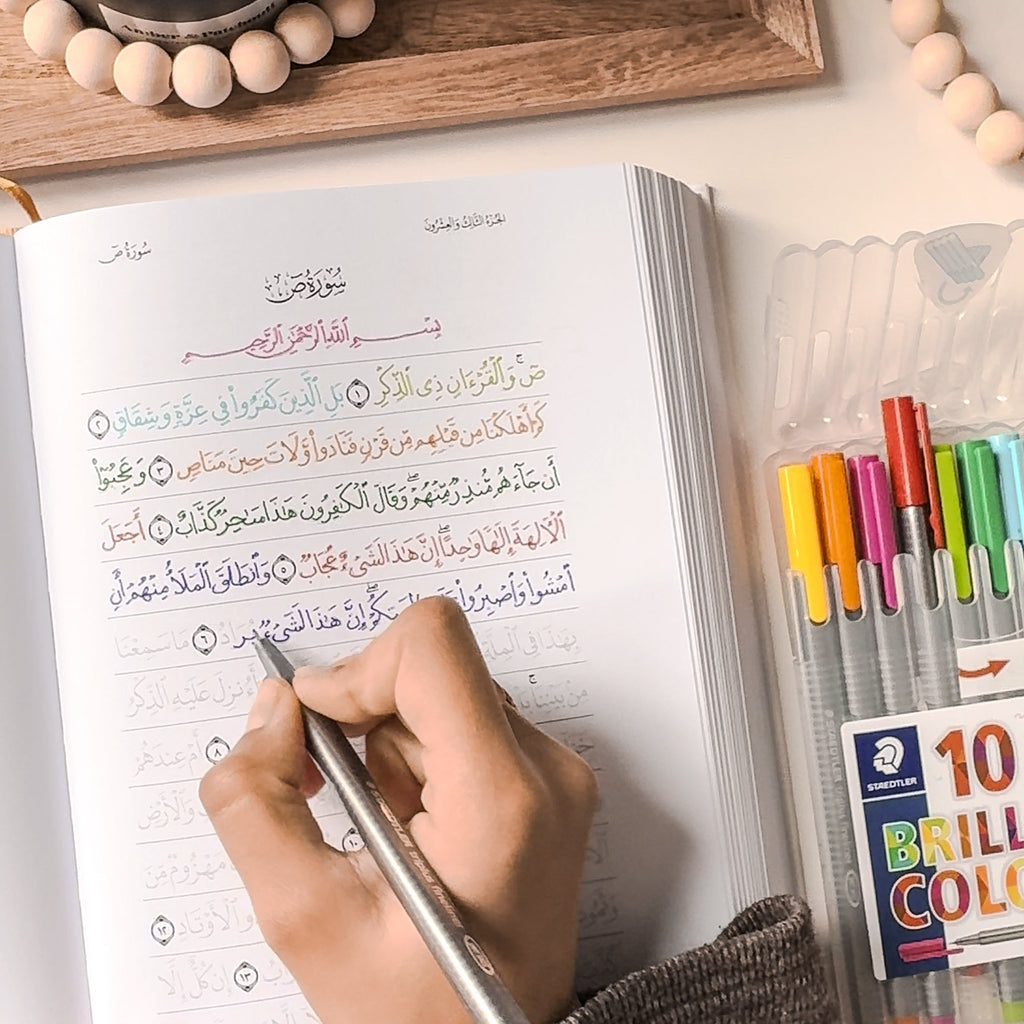 Amber & Patchouli
الجزء الثالث والعشرون
سورة ص
سُورَةُ صٓ
بِسْمِ ٱللَّهِ ٱلرَّحْمَٰنِ ٱلرَّحِيمِ
صٓ ۚ وَٱلْقُرْءَانِ ذِى ٱلذِّكْرِ ١ بَلِ ٱلَّذِينَ كَفَرُوا۟ فِى عِزَّةٍ وَشِقَاقٍ ٢
كَمْ أَهْلَكْنَا مِن قَبْلِهِم مِّن قَرْنٍ فَنَادَوا۟ وَّلَاتَ حِينَ مَنَاصٍ ٣ وَعَجِبُوٓا۟
أَن جَآءَهُم مُّنذِرٌ مِّنْهُمْ ۖ وَقَالَ ٱلْكَٰفِرُونَ هَٰذَا سَٰحِرٌ كَذَّابٌ ٤ أَجَعَلَ
ٱلْءَالِهَةَ إِلَٰهًا وَٰحِدًا ۖ إِنَّ هَٰذَا لَشَىْءٌ عُجَابٌ ٥ وَٱنطَلَقَ ٱلْمَلَأُ مِنْهُمْ أَنِ
ٱمْشُوا۟ وَٱصْبِرُوا۟ ۖ إِنَّ هَٰذَا لَشَىْءٌ يُرَادُ ٦ مَا سَمِعْنَا
بِهَٰذَا فِى ٱلْمِلَّةِ
مِنۢ بَيْنِنَا ۚ أَءُنزِلَ عَلَيْهِ ٱلذِّكْرُ
٨ أَمْ عِندَهُمْ
وَٱلْأَرْضِ
١٠
مَهْزُومٌ مِّنَ
ٱلْأَوْتَادِ ١٢
١٣ إِن كُلٌّ إِلَّا
STAEDTLER
10
BRILL
COLO